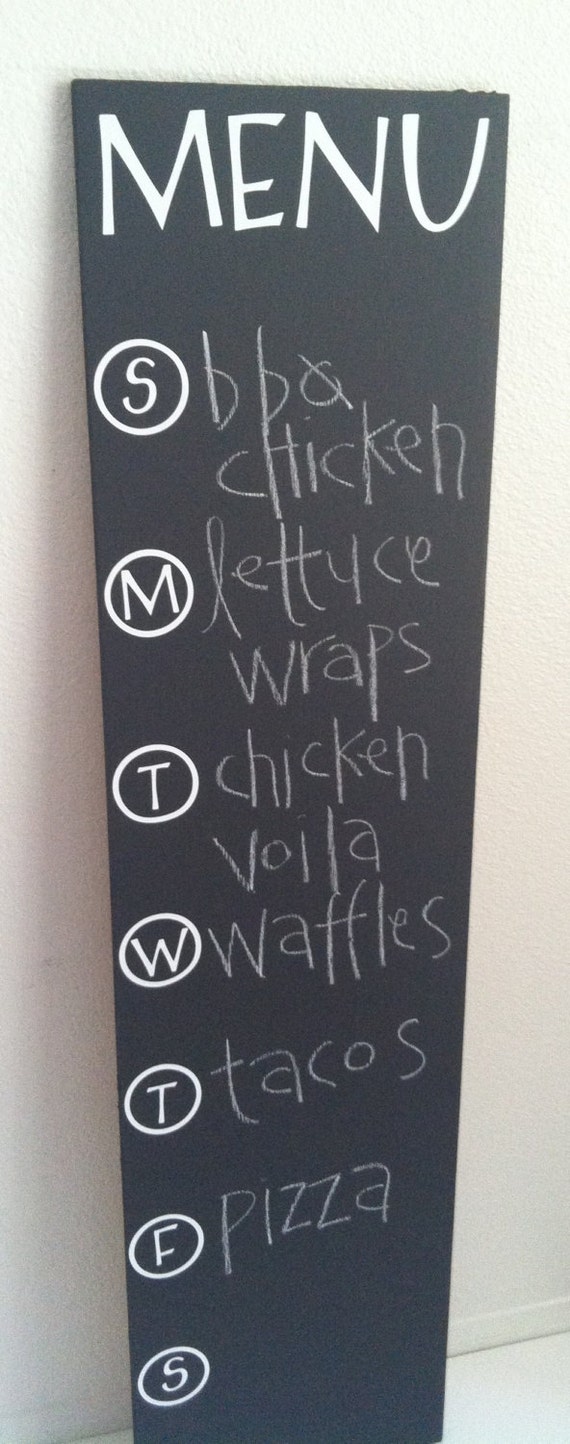 MENU
S bbq
chicken
M lettuce
wraps
T chicken
voila
W waffles
T tacos
F pizza
S